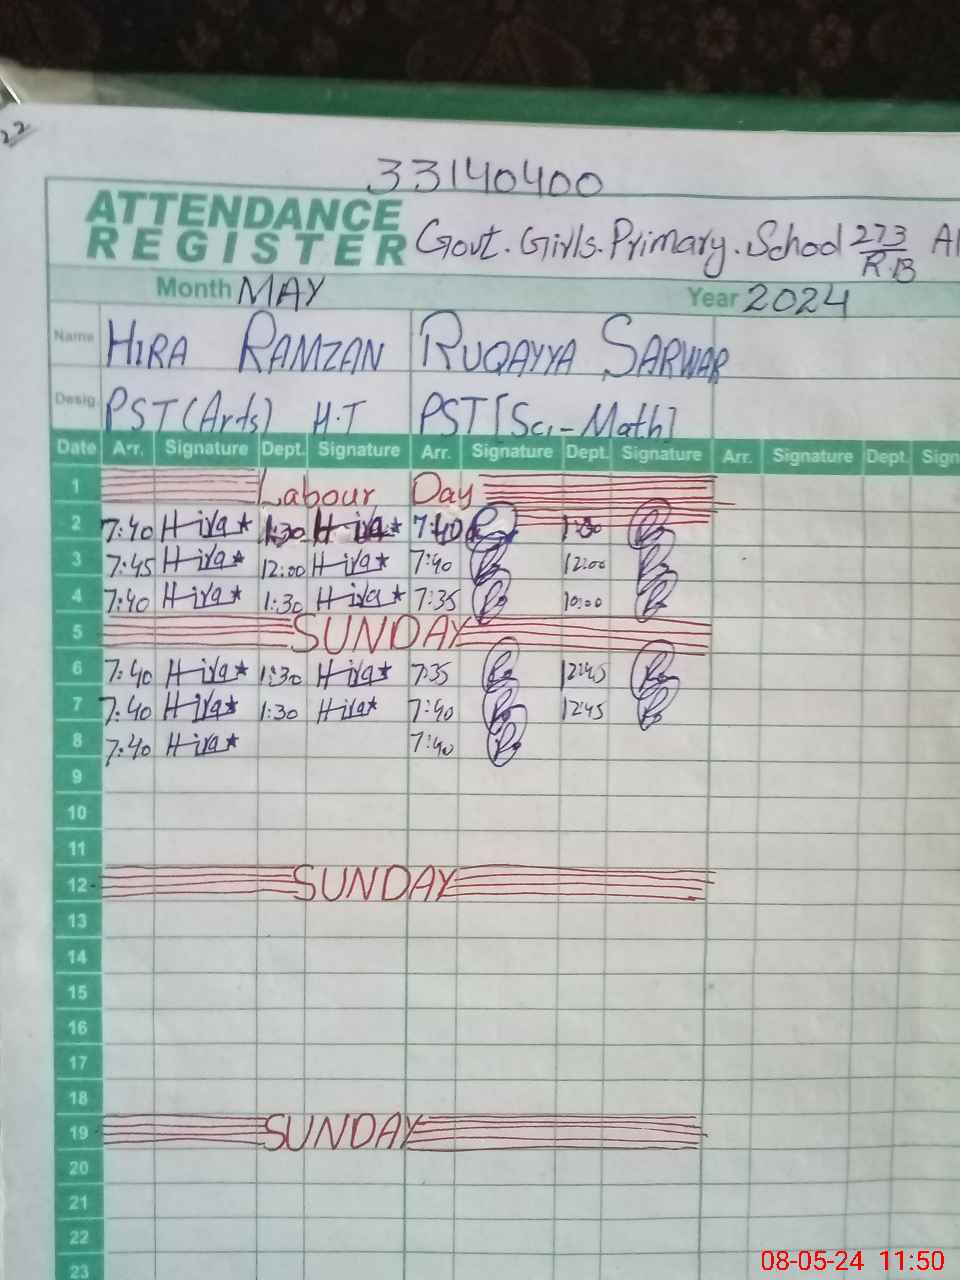 22
33140400
ATTENDANCE REGISTER Govt. Girls. Primary. School 273/R.B
Month MAY Year 2024
Name HIRA RAMZAN RUQAYYA SARWAR
Desig. PST (Arts) H.T PST [Sci-Math]
Date Arr. Signature Dept. Signature Arr. Signature Dept. Signature Arr. Signature Dept. Sign
1 Labour Day
2 7:40 Hira 1:30 Hira 7:40
3 7:45 Hira 12:00 Hira 7:40 12:00
4 7:40 Hira 1:30 Hira 7:35 10:00
5 SUNDAY
6 7:40 Hira 1:30 Hira 7:35 12:45
7 7:40 Hira 1:30 Hira 7:40 12:45
8 7:40 Hira 7:40
9
10
11
12 SUNDAY
13
14
15
16
17
18
19 SUNDAY
20
21
22
23
08-05-24 11:50